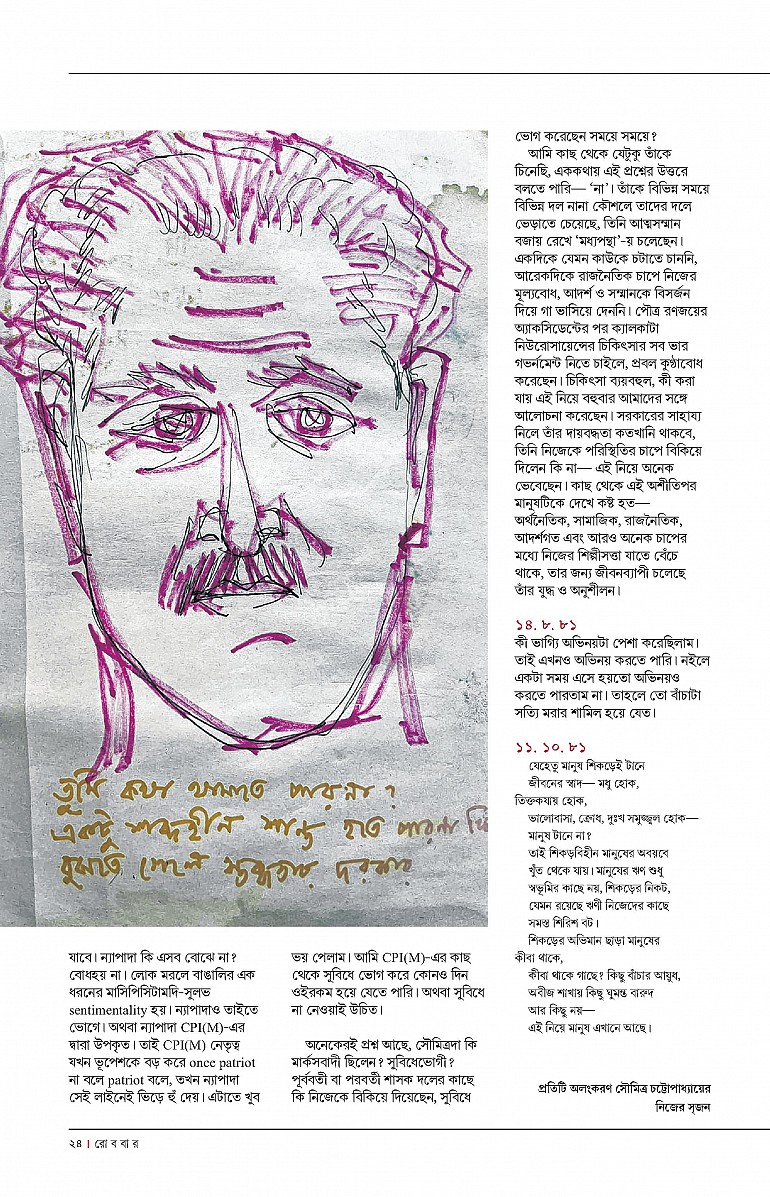 তুমি কথা থামাতে পারনা ?
একটু শব্দহীন শান্ত হতে পারনা
বুঝতে গেলে স্তব্ধতার দরকার
যাবে। ন্যাপাদা কি এসব বোঝে না?
বোধহয় না। লোক মরলে বাঙালির এক
ধরনের মাসিপিসিটামদি-সুলভ
sentimentality হয়। ন্যাপাদাও তাইতে
ভোগে। অথবা ন্যাপাদা CPI(M)-এর
দ্বারা উপকৃত। তাই CPI(M) নেতৃত্ব
যখন ভূপেশকে বড় করে once patriot
না বলে patriot বলে, তখন ন্যাপাদা
সেই লাইনেই ভিড়ে হুঁ দেয়। এটাতে খুব
ভয় পেলাম। আমি CPI(M)-এর কাছ
থেকে সুবিধে ভোগ করে কোনও দিন
ওইরকম হয়ে যেতে পারি। অথবা সুবিধে
না নেওয়াই উচিত।
অনেকেরই প্রশ্ন আছে, সৌমিত্রদা কি
মার্কসবাদী ছিলেন? সুবিধেভোগী?
পূর্ববর্তী বা পরবর্তী শাসক দলের কাছে
কি নিজেকে বিকিয়ে দিয়েছেন, সুবিধে
ভোগ করেছেন সময়ে সময়ে?
আমি কাছ থেকে যেটুকু তাঁকে
চিনেছি, এককথায় এই প্রশ্নের উত্তরে
বলতে পারি— ‘না’। তাঁকে বিভিন্ন সময়ে
বিভিন্ন দল নানা কৌশলে তাদের দলে
ভেড়াতে চেয়েছে, তিনি আত্মসম্মান
বজায় রেখে ‘মধ্যপন্থা’-য় চলেছেন।
একদিকে যেমন কাউকে চটাতে চাননি,
আরেকদিকে রাজনৈতিক চাপে নিজের
মূল্যবোধ, আদর্শ ও সম্মানকে বিসর্জন
দিয়ে গা ভাসিয়ে দেননি। পৌত্র রণজয়ের
অ্যাকসিডেন্টের পর ক্যালকাটা
নিউরোসায়েন্সের চিকিৎসার সব ভার
গভর্নমেন্ট নিতে চাইলে, প্রবল কুণ্ঠাবোধ
করেছেন। চিকিৎসা ব্যয়বহুল, কী করা
যায় এই নিয়ে বহুবার আমাদের সঙ্গে
আলোচনা করেছেন। সরকারের সাহায্য
নিলে তাঁর দায়বদ্ধতা কতখানি থাকবে,
তিনি নিজেকে পরিস্থিতির চাপে বিকিয়ে
দিলেন কি না— এই নিয়ে অনেক
ভেবেছেন। কাছ থেকে এই অশীতিপর
মানুষটিকে দেখে কষ্ট হত—
অর্থনৈতিক, সামাজিক, রাজনৈতিক,
আদর্শগত এবং আরও অনেক চাপের
মধ্যে নিজের শিল্পীসত্তা যাতে বেঁচে
থাকে, তার জন্য জীবনব্যাপী চলেছে
তাঁর যুদ্ধ ও অনুশীলন।
১৪. ৮. ৮১
কী ভাগ্যি অভিনয়টা পেশা করেছিলাম।
তাই এখনও অভিনয় করতে পারি। নইলে
একটা সময় এসে হয়তো অভিনয়ও
করতে পারতাম না। তাহলে তো বাঁচাটা
সত্যি মরার শামিল হয়ে যেত।
১১. ১০. ৮১
যেহেতু মানুষ শিকড়েই টানে
জীবনের স্বাদ— মধু হোক,
তিক্তকষায় হোক,
ভালোবাসা, ক্রোধ, দুঃখ সমুজ্জ্বল হোক—
মানুষ টানে না?
তাই শিকড়বিহীন মানুষের অবয়বে
খুঁত থেকে যায়। মানুষের ঋণ শুধু
স্বভূমির কাছে নয়, শিকড়ের নিকট,
যেমন রয়েছে ঋণী নিজেদের কাছে
সমস্ত শিরিশ বট।
শিকড়ের অভিমান ছাড়া মানুষের
কীবা থাকে,
কীবা থাকে গাছে? কিছু বাঁচার আয়ুধ,
অবীজ শাখায় কিছু ঘুমন্ত বারুদ
আর কিছু নয়—
এই নিয়ে মানুষ এখানে আছে।
প্রতিটি অলংকরণ সৌমিত্র চট্টোপাধ্যায়ের
নিজের সৃজন
২৪ । রো ব বা র